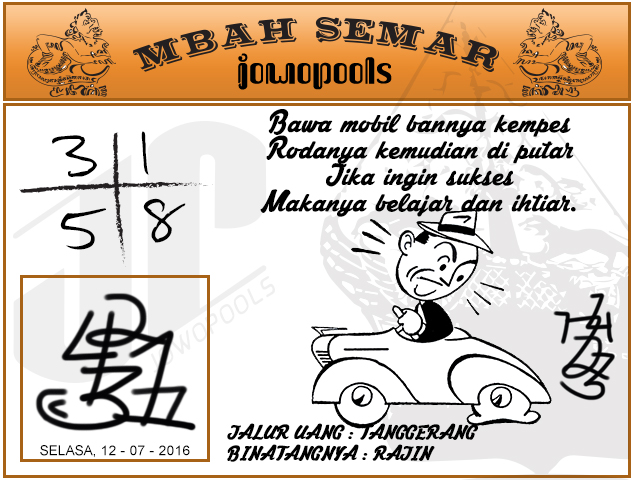 MBAH SEMAR
jowopools
Bawa mobil bannya kempes
Rodanya kemudian di putar
Jika ingin sukses
Makanya belajar dan ihtiar.
3 1
5 8
JOWOPOOLS
SELASA, 12 - 07 - 2016
JALUR UANG : TANGGERANG
BINATANGNYA : RAJIN